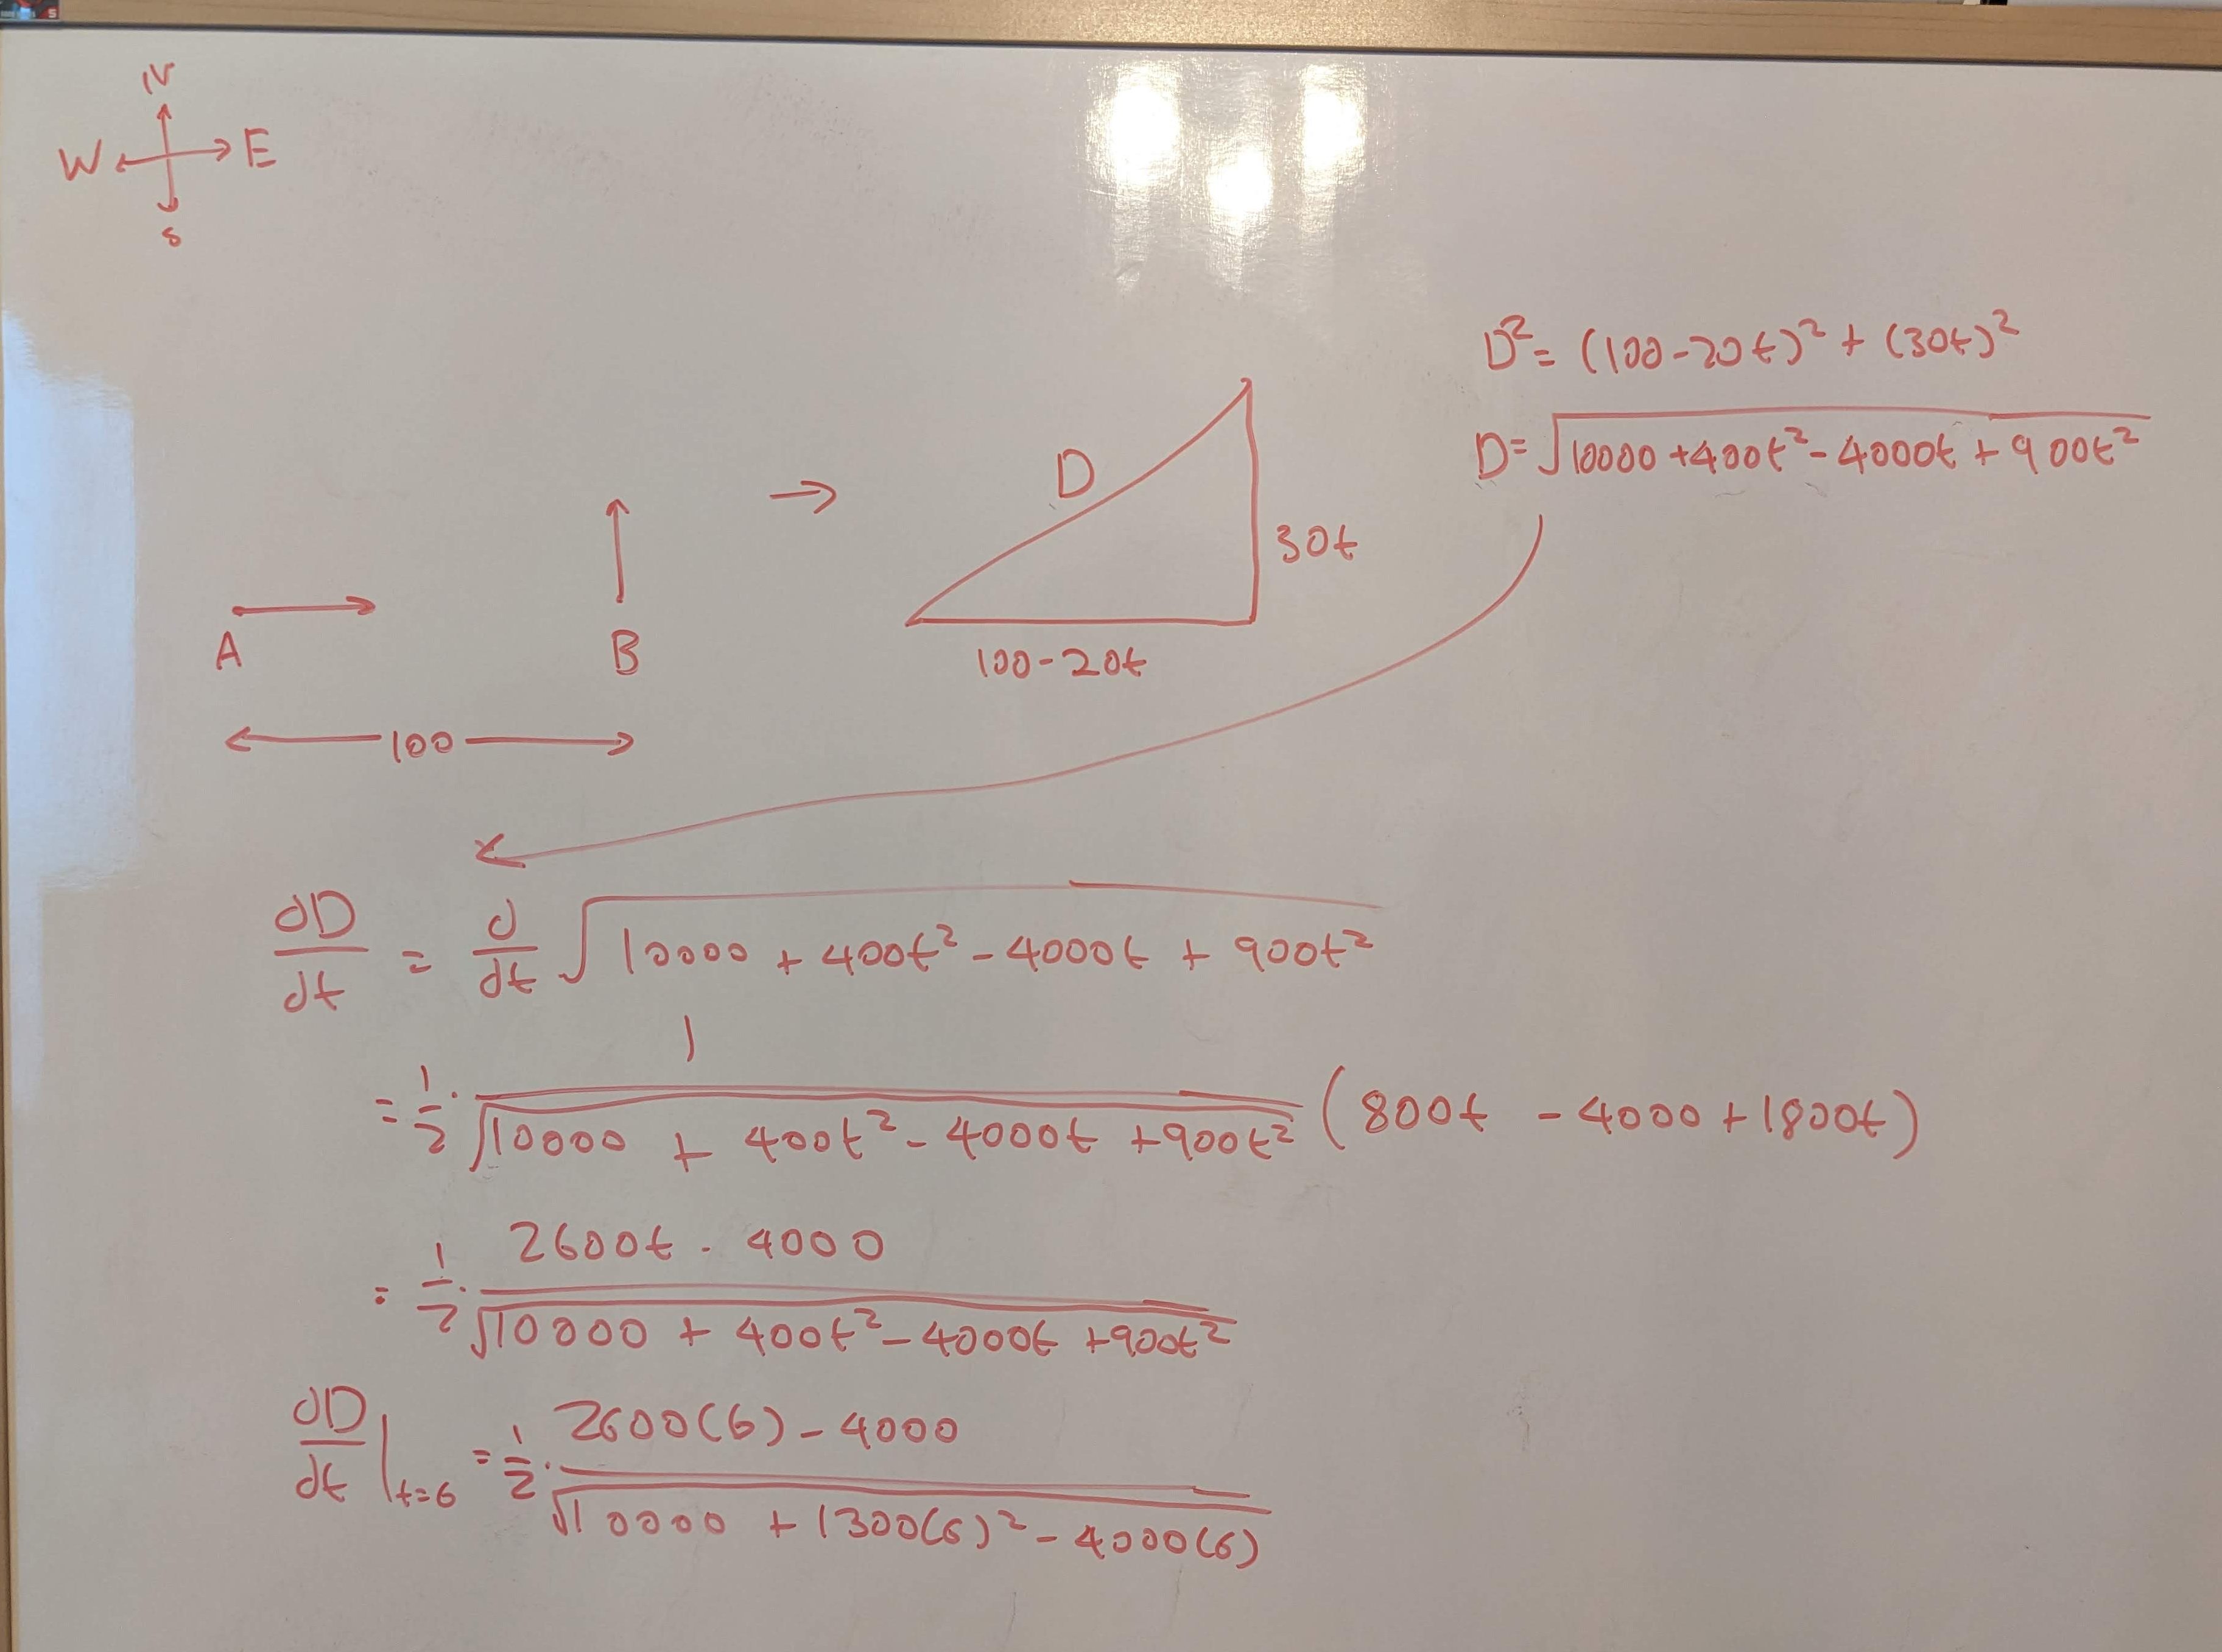 N
W E
S
D² = (100-20t)² + (30t)²
D = √(10000 + 400t² - 4000t + 900t²)
D
30t
A
B
100-20t
100
dD/dt = d/dt √(10000 + 400t² - 4000t + 900t²)
= 1/2 · 1/√(10000 + 400t² - 4000t + 900t²) (800t - 4000 + 1800t)
= 1/2 · (2600t - 4000)/√(10000 + 400t² - 4000t + 900t²)
dD/dt |t=6 = 1/2 · (2600(6) - 4000)/√(10000 + 1300(6)² - 4000(6))